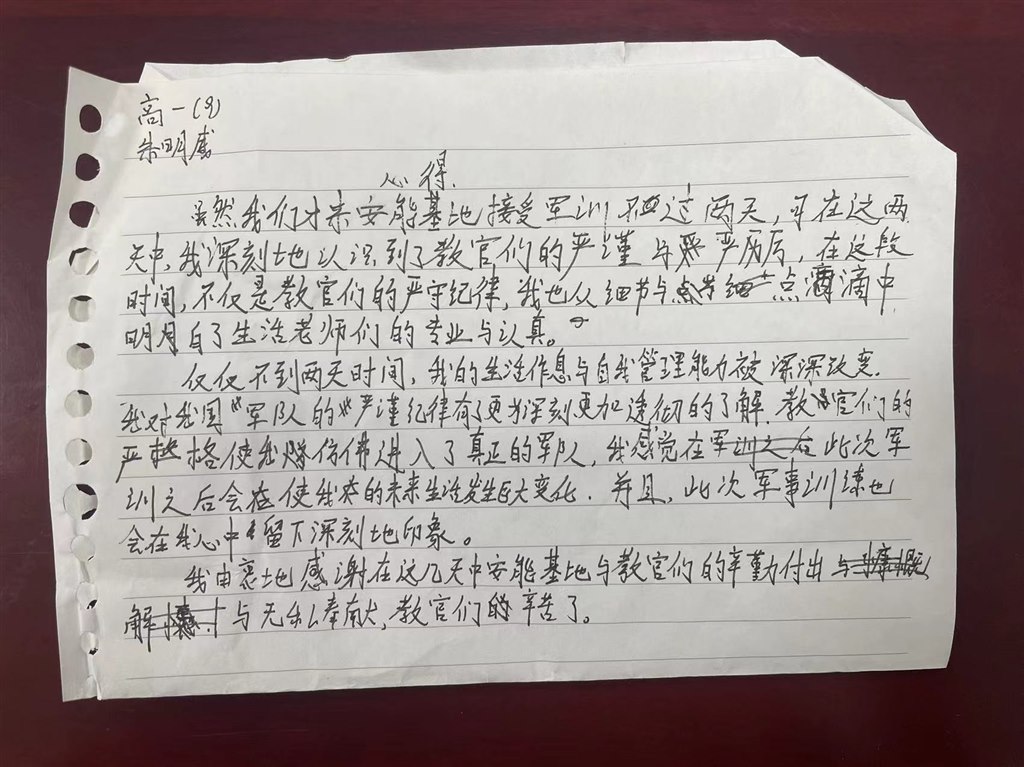 高一(9)
朱明感
心得.
虽然我们才来安能基地接受军训不过两天,可在这两
天中,我深刻地认识到了教官们的严谨与严厉后,在这段
时间,不仅是教官们的严守纪律,我也从细节与点滴中
明白了生活老师们的专业与认真。
仅仅不到两天时间,我的生活作息与自我管理能力被深深改变.
我对我国军队的严谨纪律有了更为深刻更加透彻的了解.教官们的
严格使我仿佛进入了真正的军队,我感觉在此次军
训之后会使我的未来生活发生巨大变化.并且,此次军事训练也
会在我心中留下深刻地印象。
我由衷地感谢在这几天中安能基地与教官们的辛勤付出
与无私奉献,教官们辛苦了。